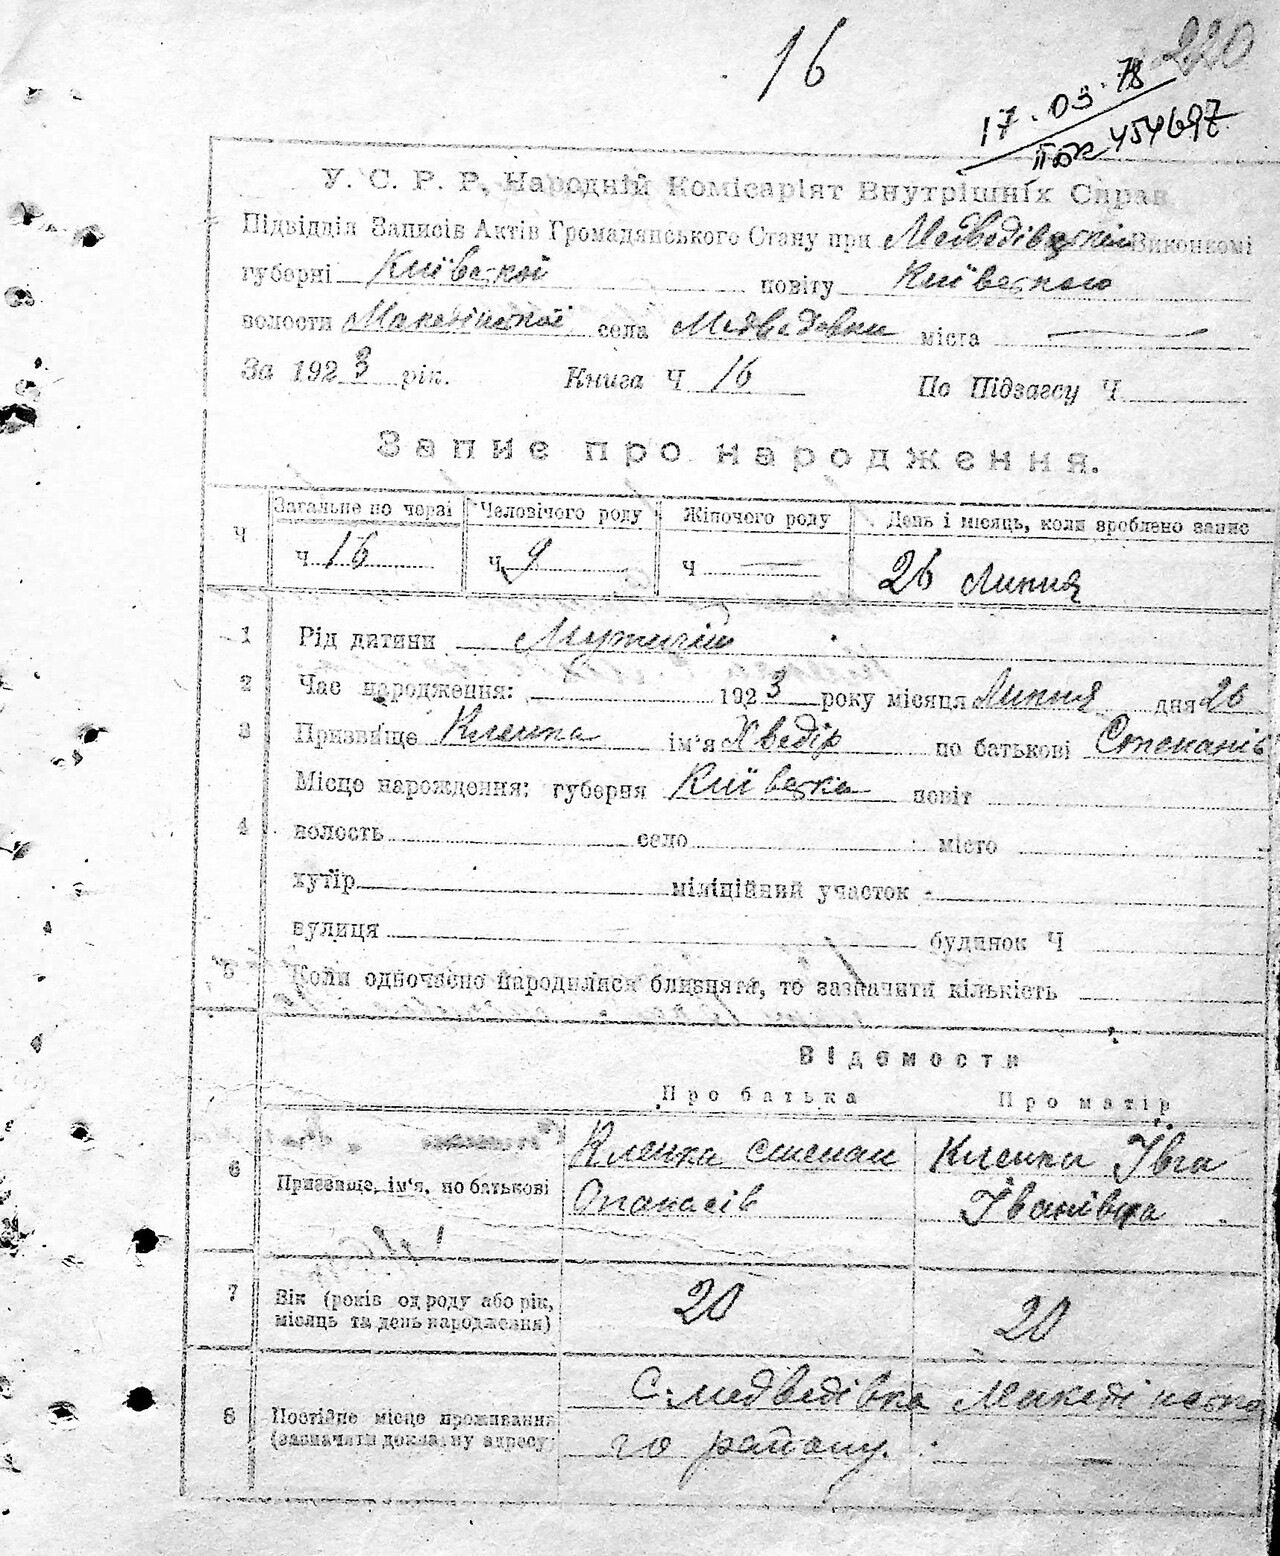 16
220
17.03.78
454697
У. С. Р. Р. Народній Комісаріят Внутрішніх Справ
Підвідділ Записів Актів Громадянського Стану при Медведівскім Виконкомі
губерні Київскої повіту Київского
волости села Медведовки міста —
За 1923 рік. Книга Ч 16 По Підзагсу Ч
Запис про народження.
Ч Загальне по черзі Человічого роду Жіночого роду День і місяць, коли зроблено запис
Ч 16 Ч 9 Ч — 26 Липня
1 Рід дитини
2 Час народження: 1923 року місяця Липня дня 26
3 Призвище Кленка ім'я Хведір по батькові Степанів
Місце народження: губерня Київска повіт
4 волость село місто
хутір міліційний участок
вулиця будинок Ч
5 Коли одночасно народилися близнята, то зазначити кількість
Відомости
Про батька Про матір
6 Призвище, ім'я, по батькові Кленка Степан Кленка Івга
Опанасів Іванівна
7 Вік (років од роду або рік, місяць та день народження) 20 20
8 Постійне місце проживання (зазначити докладну адресу) с. медведівка
го району.